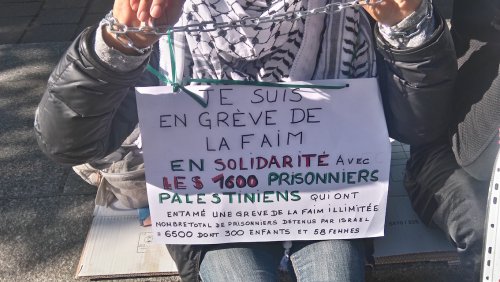 JE SUIS
EN GRÈVE DE
LA FAIM
EN SOLIDARITÉ AVEC
LES 1600 PRISONNIERS
PALESTINIENS QUI ONT
ENTAMÉ UNE GREVE DE LA FAIM ILLIMITÉE
NOMBRE TOTAL DE PRISONNIERS DETENUS PAR ISRAEL
= 6500 DONT 300 ENFANTS ET 58 FEMMES